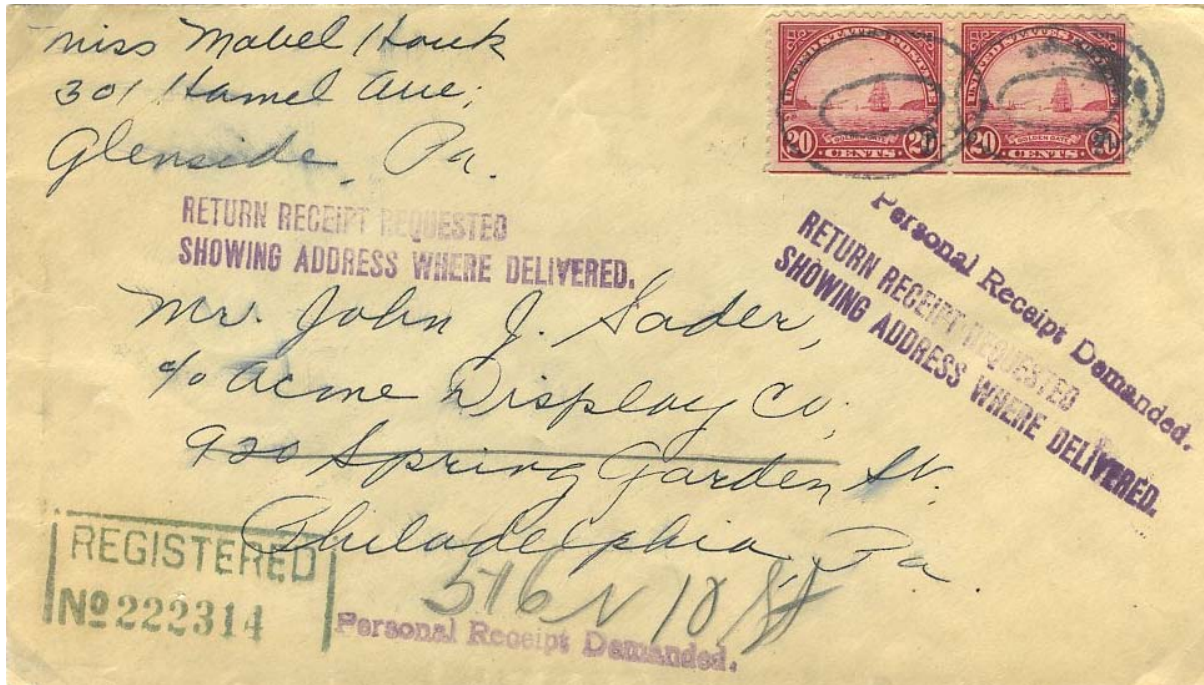 Miss Mabel Houk
301 Hamel Ave;
Glenside, Pa.
UNITED STATES POSTAGE
GOLDEN GATE
20 CENTS 20
UNITED STATES POSTAGE
GOLDEN GATE
20 CENTS 20
RETURN RECEIPT REQUESTED
SHOWING ADDRESS WHERE DELIVERED.
Personal Receipt Demanded.
RETURN RECEIPT REQUESTED
SHOWING ADDRESS WHERE DELIVERED.
Mr. John J. Sader,
c/o Acme Display Co;
920 Spring Garden St.
Philadelphia, Pa.
516 N 10 St
REGISTERED
No 222314
Personal Receipt Demanded.